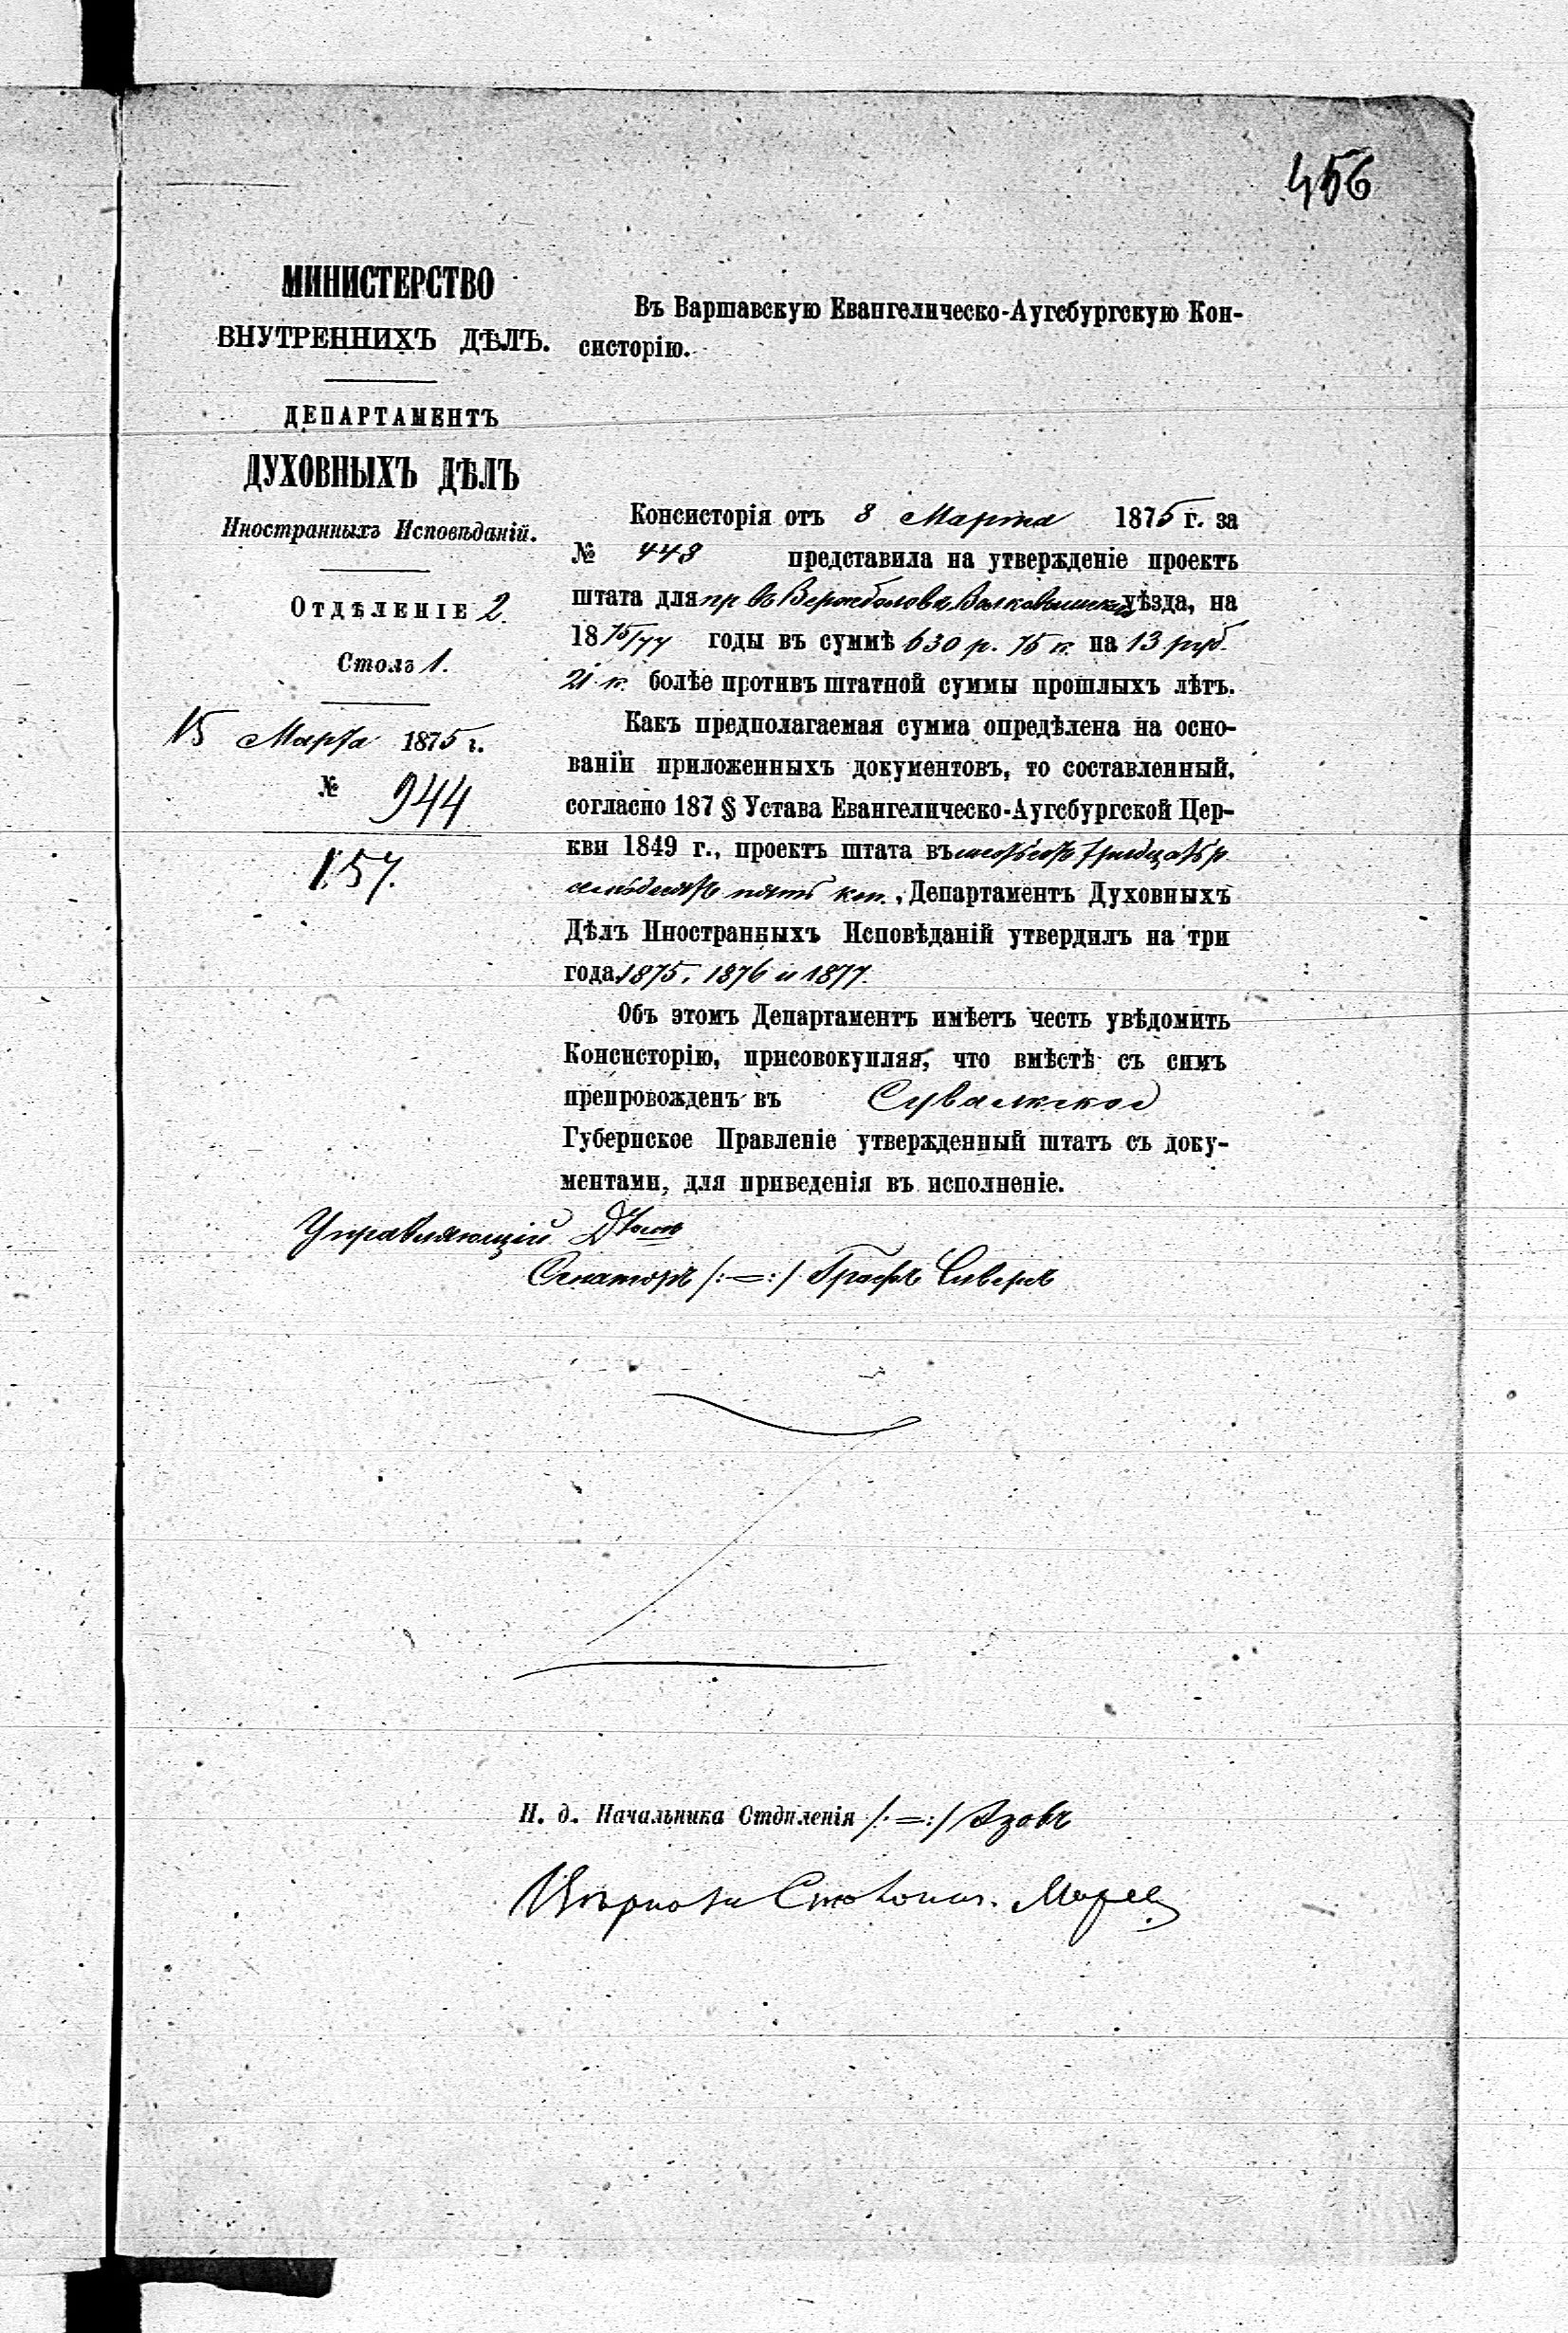 456
МИНИСТЕРСТВО
ВНУТРЕННИХЪ ДѢЛЪ.
ДЕПАРТАМЕНТЪ
ДУХОВНЫХЪ ДѢЛЪ
Иностранныхъ Исповѣданій.
ОТДѢЛЕНІЕ 2.
Столъ 1.
15 Марта 1875 г.
№ 944
157.
Въ Варшавскую Евангелическо-Аугсбургскую Кон-
систорію.
Консисторія отъ 8 Марта 1875 г. за
№ 448 представила на утвержденіе проектъ
штата для пр въ Вержболовѣ Волковышскаго уѣзда, на
1875/77 годы въ суммѣ 630 р. 75 к. на 13 руб.
21 к. болѣе противъ штатной суммы прошлыхъ лѣтъ.
Какъ предполагаемая сумма опредѣлена на осно-
ваніи приложенныхъ документовъ, то составленный,
согласно 187 § Устава Евангелическо-Аугсбургской Цер-
кви 1849 г., проектъ штата въ шестьсотъ тридцать р
семьдесятъ пять коп., Департаментъ Духовныхъ
Дѣлъ Иностранныхъ Исповѣданій утвердилъ на три
года 1875, 1876 и 1877.
Объ этомъ Департаментъ имѣетъ честь увѣдомить
Консисторію, присовокупляя, что вмѣстѣ съ симъ
препровожденъ въ Сувалкское
Губернское Правленіе утвержденный штатъ съ доку-
ментами, для приведенія въ исполненіе.
Управляющій
Сенаторъ /:=:/ Графъ Сиверсъ
И. д. Начальника Отдѣленія /:=:/ Азовъ